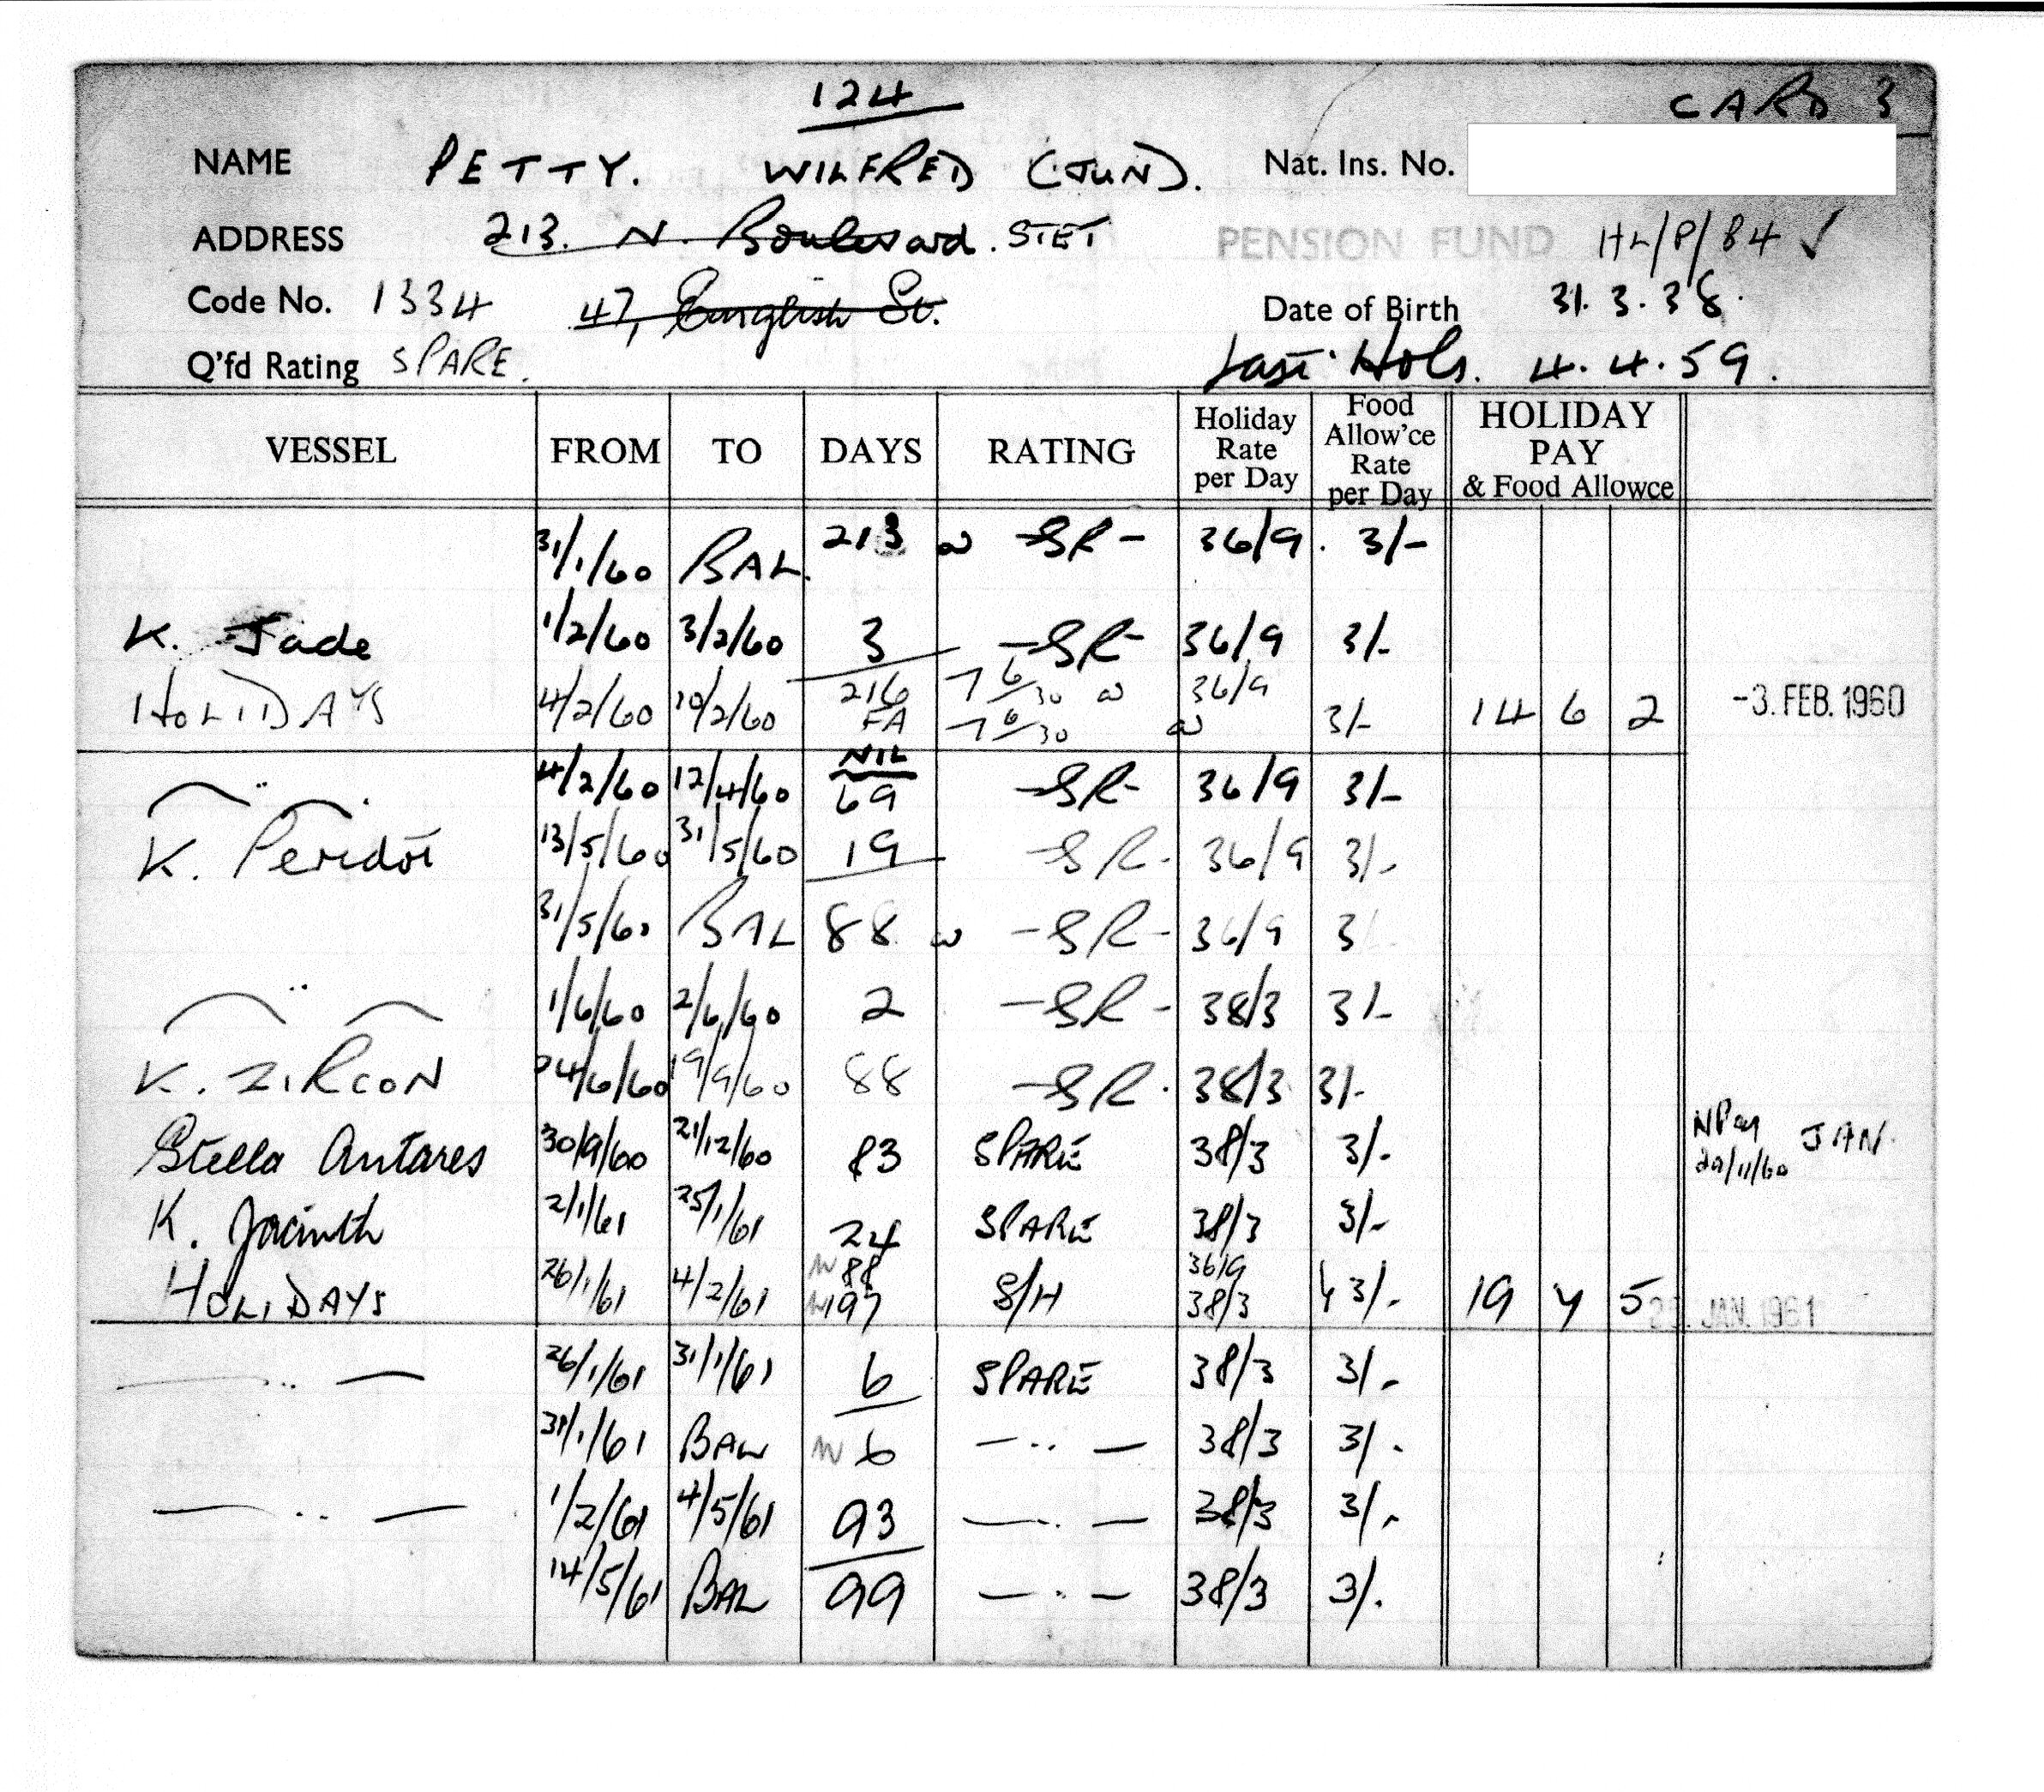 124
CARD 3
NAME PETTY. WILFRED (JUN). Nat. Ins. No.
ADDRESS 213. N. Boulevard. STET PENSION FUND HL/P/84 ✓
Code No. 1334 47, English St. Date of Birth 31.3.38.
Q'fd Rating SPARE. Last Hols. 4.4.59.
VESSEL FROM TO DAYS RATING Holiday Rate per Day Food Allow'ce Rate per Day HOLIDAY PAY & Food Allowce
31/1/60 BAL. 213 @ -SR- 36/9. 3/-
K. Jade 1/2/60 3/2/60 3 -SR- 36/9 3/-
HOLIDAYS 4/2/60 10/2/60 216 7 6/30 @ 36/9
FA 7 6/30 @ 3/- 14 6 2 -3. FEB. 1960
NIL
4/2/60 12/4/60 69 -SR- 36/9 3/-
K. Peridot 13/5/60 31/5/60 19 -SR- 36/9 3/-
31/5/60 BAL 88 @ -SR- 36/9 3
1/6/60 2/6/60 2 -SR- 38/3 3/-
K. ZIRCON 24/6/60 19/9/60 88 -SR- 38/3 3/-
Stella Antares 30/9/60 21/12/60 83 SPARE 38/3 3/- 20/11/60 JAN.
K. Jacinth 2/1/61 25/1/61 24 SPARE 38/3 3/-
88 36/9
HOLIDAYS 26/1/61 4/2/61 197 S/H 38/3 3/- 19 4 5 25. JAN. 1961
— .. — 26/1/61 31/1/61 6 SPARE 38/3 3/-
31/1/61 BAL 6 — .. — 38/3 3/-
— .. — 1/2/61 4/5/61 93 — .. — 38/3 3/-
14/5/61 BAL 99 — .. — 38/3 3/-